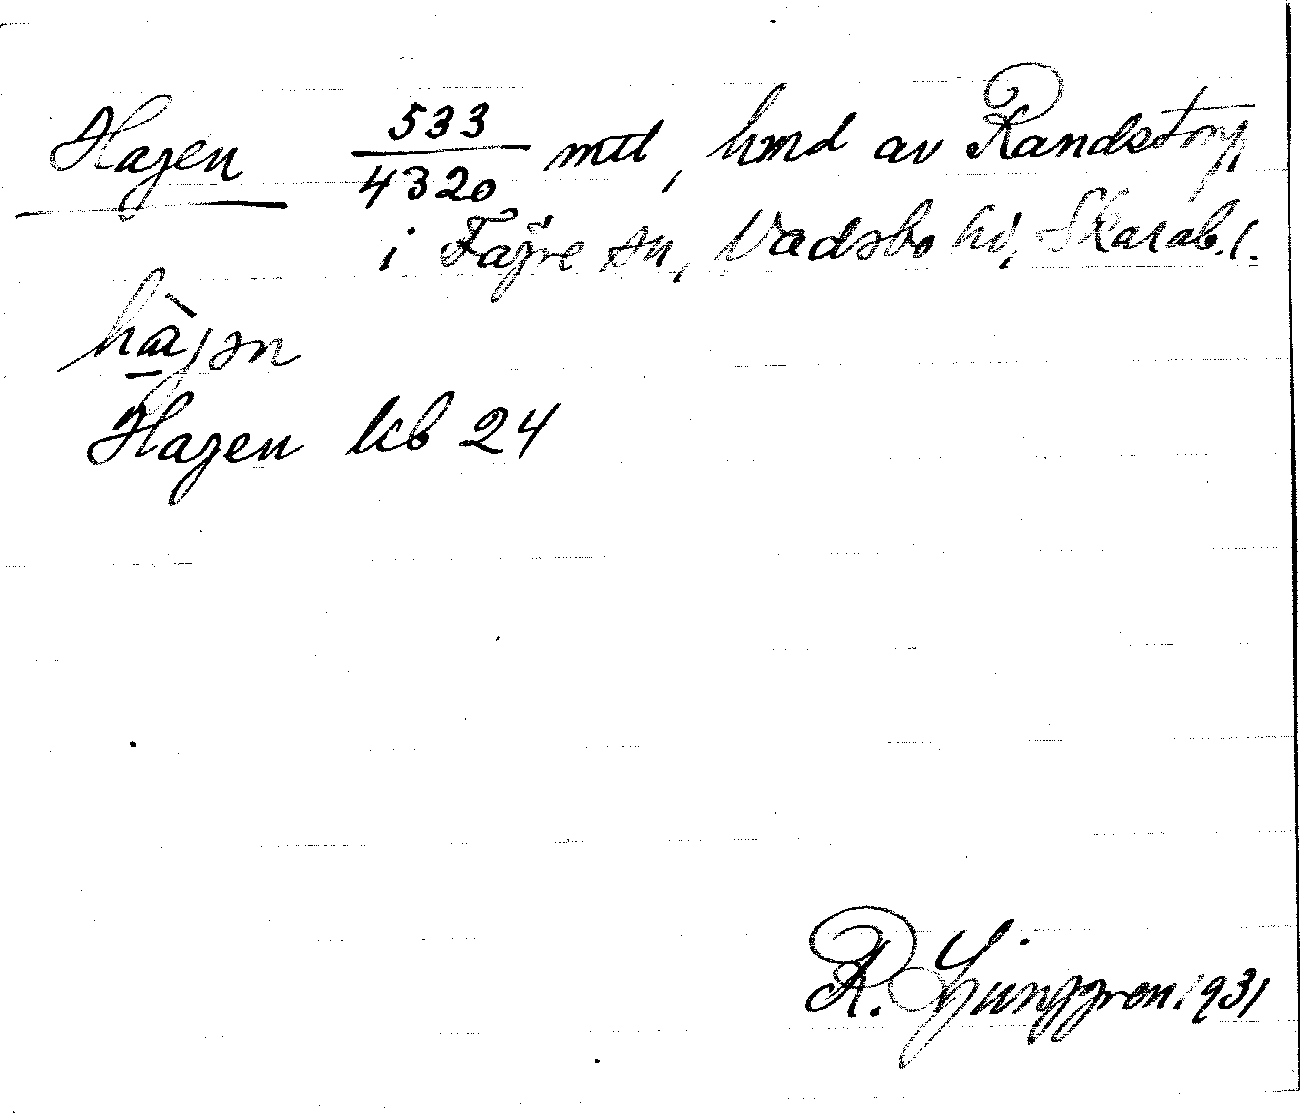 Hagen 533/4320 mtl, hmd av Randstorp,
i Fägre sn, Vadsbo hd, Skarab. l.
hàgən
Hagen kb 24
R. Ljunggren. 1931